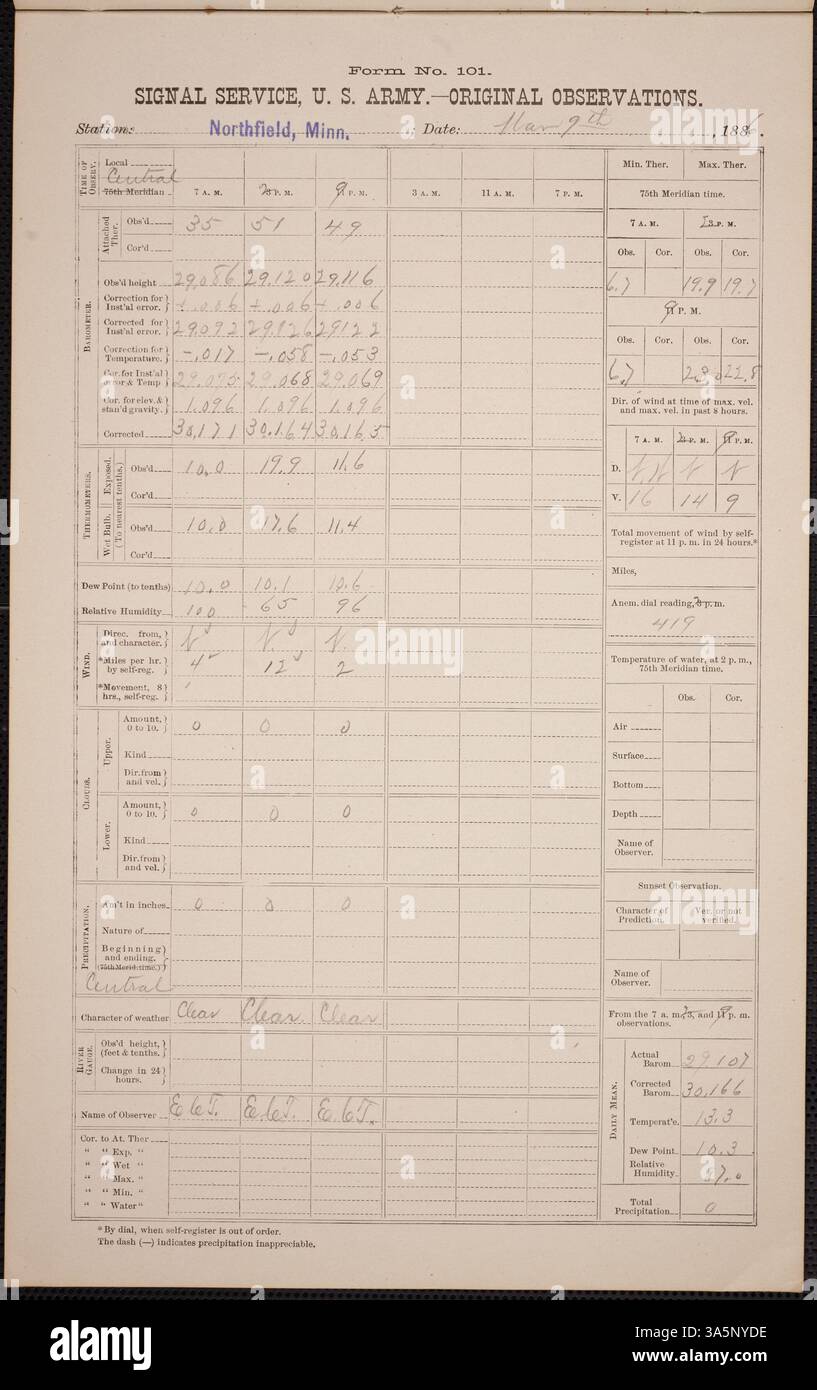 Form No. 101.
SIGNAL SERVICE, U. S. ARMY.—ORIGINAL OBSERVATIONS.
Station: Northfield, Minn. ; Date: Mar 9th, 188
TIME OF OBSERV.
Local
Central
75th Meridian
7 A. M. 3 P. M. 9 11 P. M. 3 A. M. 11 A. M. 7 P. M.
BAROMETER.
Attached Ther.
Obs'd 35 51 49
Cor'd
Obs'd height 29.086 29.120 29.116
Correction for Inst'al error. +.006 +.006 +.006
Corrected for Inst'al error. 29.092 29.126 29.122
Correction for Temperature. -.017 -.058 -.053
Cor. for Inst'al error & Temp 29.075 29.068 29.069
Cor. for elev. & stan'd gravity. 1.096 1.096 1.096
Corrected 30.171 30.164 30.165
THERMOMETERS.
(To nearest tenths.)
Exposed.
Obs'd 10.0 19.9 11.6
Cor'd
Wet Bulb.
Obs'd 10.0 17.6 11.4
Cor'd
Dew Point (to tenths) 10.0 10.1 10.6
Relative Humidity 100 65 96
WIND.
Direc. from, and character. N N. N.
*Miles per hr. by self-reg. 4 12 2
*Movement, 8 hrs., self-reg.
CLOUDS.
Upper.
Amount, 0 to 10. 0 0 0
Kind
Dir. from and vel.
Lower.
Amount, 0 to 10. 0 0 0
Kind
Dir. from and vel.
PRECIPITATION.
Am't in inches 0 0 0
Nature of
Beginning and ending.
(75th Merid. time.)
Central
Character of weather Clear Clear. Clear
RIVER GAUGE.
Obs'd height, (feet & tenths.)
Change in 24 hours.
Name of Observer E.C.T. E.C.T. E.C.T.
Cor. to At. Ther
" " Exp. "
" " Wet "
" " Max. "
" " Min. "
" " Water "
*By dial, when self-register is out of order.
The dash (—) indicates precipitation inappreciable.
Min. Ther. Max. Ther.
75th Meridian time.
7 A. M. 3 P. M.
Obs. Cor. Obs. Cor.
6.7 19.9 19.7
9 11 P. M.
Obs. Cor. Obs. Cor.
6.7 22.8
Dir. of wind at time of max. vel. and max. vel. in past 8 hours.
7 A. M. 3 P. M. 9 11 P. M.
D. N N
V. 16 14 9
Total movement of wind by self-register at 11 p. m. in 24 hours.*
Miles,
Anem. dial reading, 3 p. m.
419
Temperature of water, at 2 p. m., 75th Meridian time.
Obs. Cor.
Air
Surface
Bottom
Depth
Name of Observer.
Sunset Observation.
Character of Prediction. Ver. or not verified.
Name of Observer.
From the 7 a. m., 3, and 9 11 p. m. observations.
DAILY MEAN.
Actual Barom. 29.107
Corrected Barom. 30.166
Temperat'e. 13.3
Dew Point 10.3
Relative Humidity
Total Precipitation 0
alamy
Image ID: 3A5NYDE
www.alamy.com